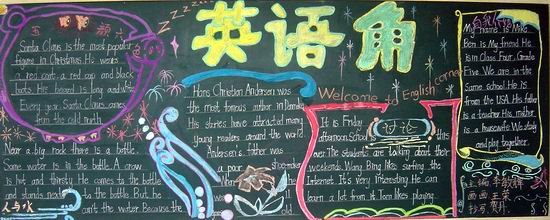 英语角
Welcome to English corner
Santa Claus is the most popular
figure in Christmas. He wears
a red coat, a red cap and black
boots. His beard is long and white
Every year Santa Claus comes
from the cold north
Near a big rock there is a bottle.
Some water is in the bottle. A crow
is hot and thirsty. He comes to the bottle
and stands next to the bottle. But he
can't the water. Because the
Hans Christian Andersen was
the most famous author in
His stories have attracted many
young readers around the world
Andersen's Father was
a poor shoe
It is Friday
afternoon School is this
over. The students are talking about their
weekends. Wang Bing likes surfing the
Internet. It's very interesting. He can
learn a lot from it. Tom likes playing
讨论
My name is Mike
Ben is My friend. He
is in Class Four, Grade
Five. We are in the
Same school. He is
from the USA. His father
is a teacher. His mother
is a housewife. We study
and play together.